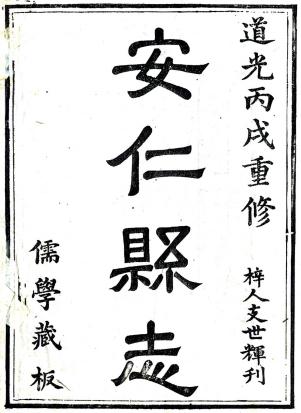 道光丙戌重修
梓人支世輝刊
安仁縣志
儒學藏板